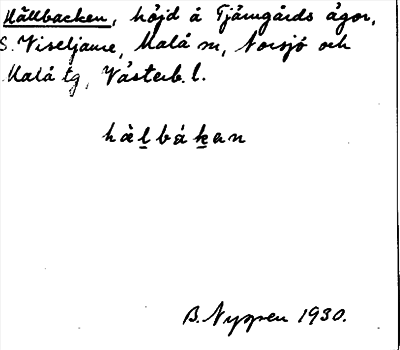 Hällbacken, höjd å Tjärngårds ägor,
S. Viseljaure, Malå sn, Norsjö och
Malå tg, Västerb. l.
hàlbákan
B. Nygren 1930.